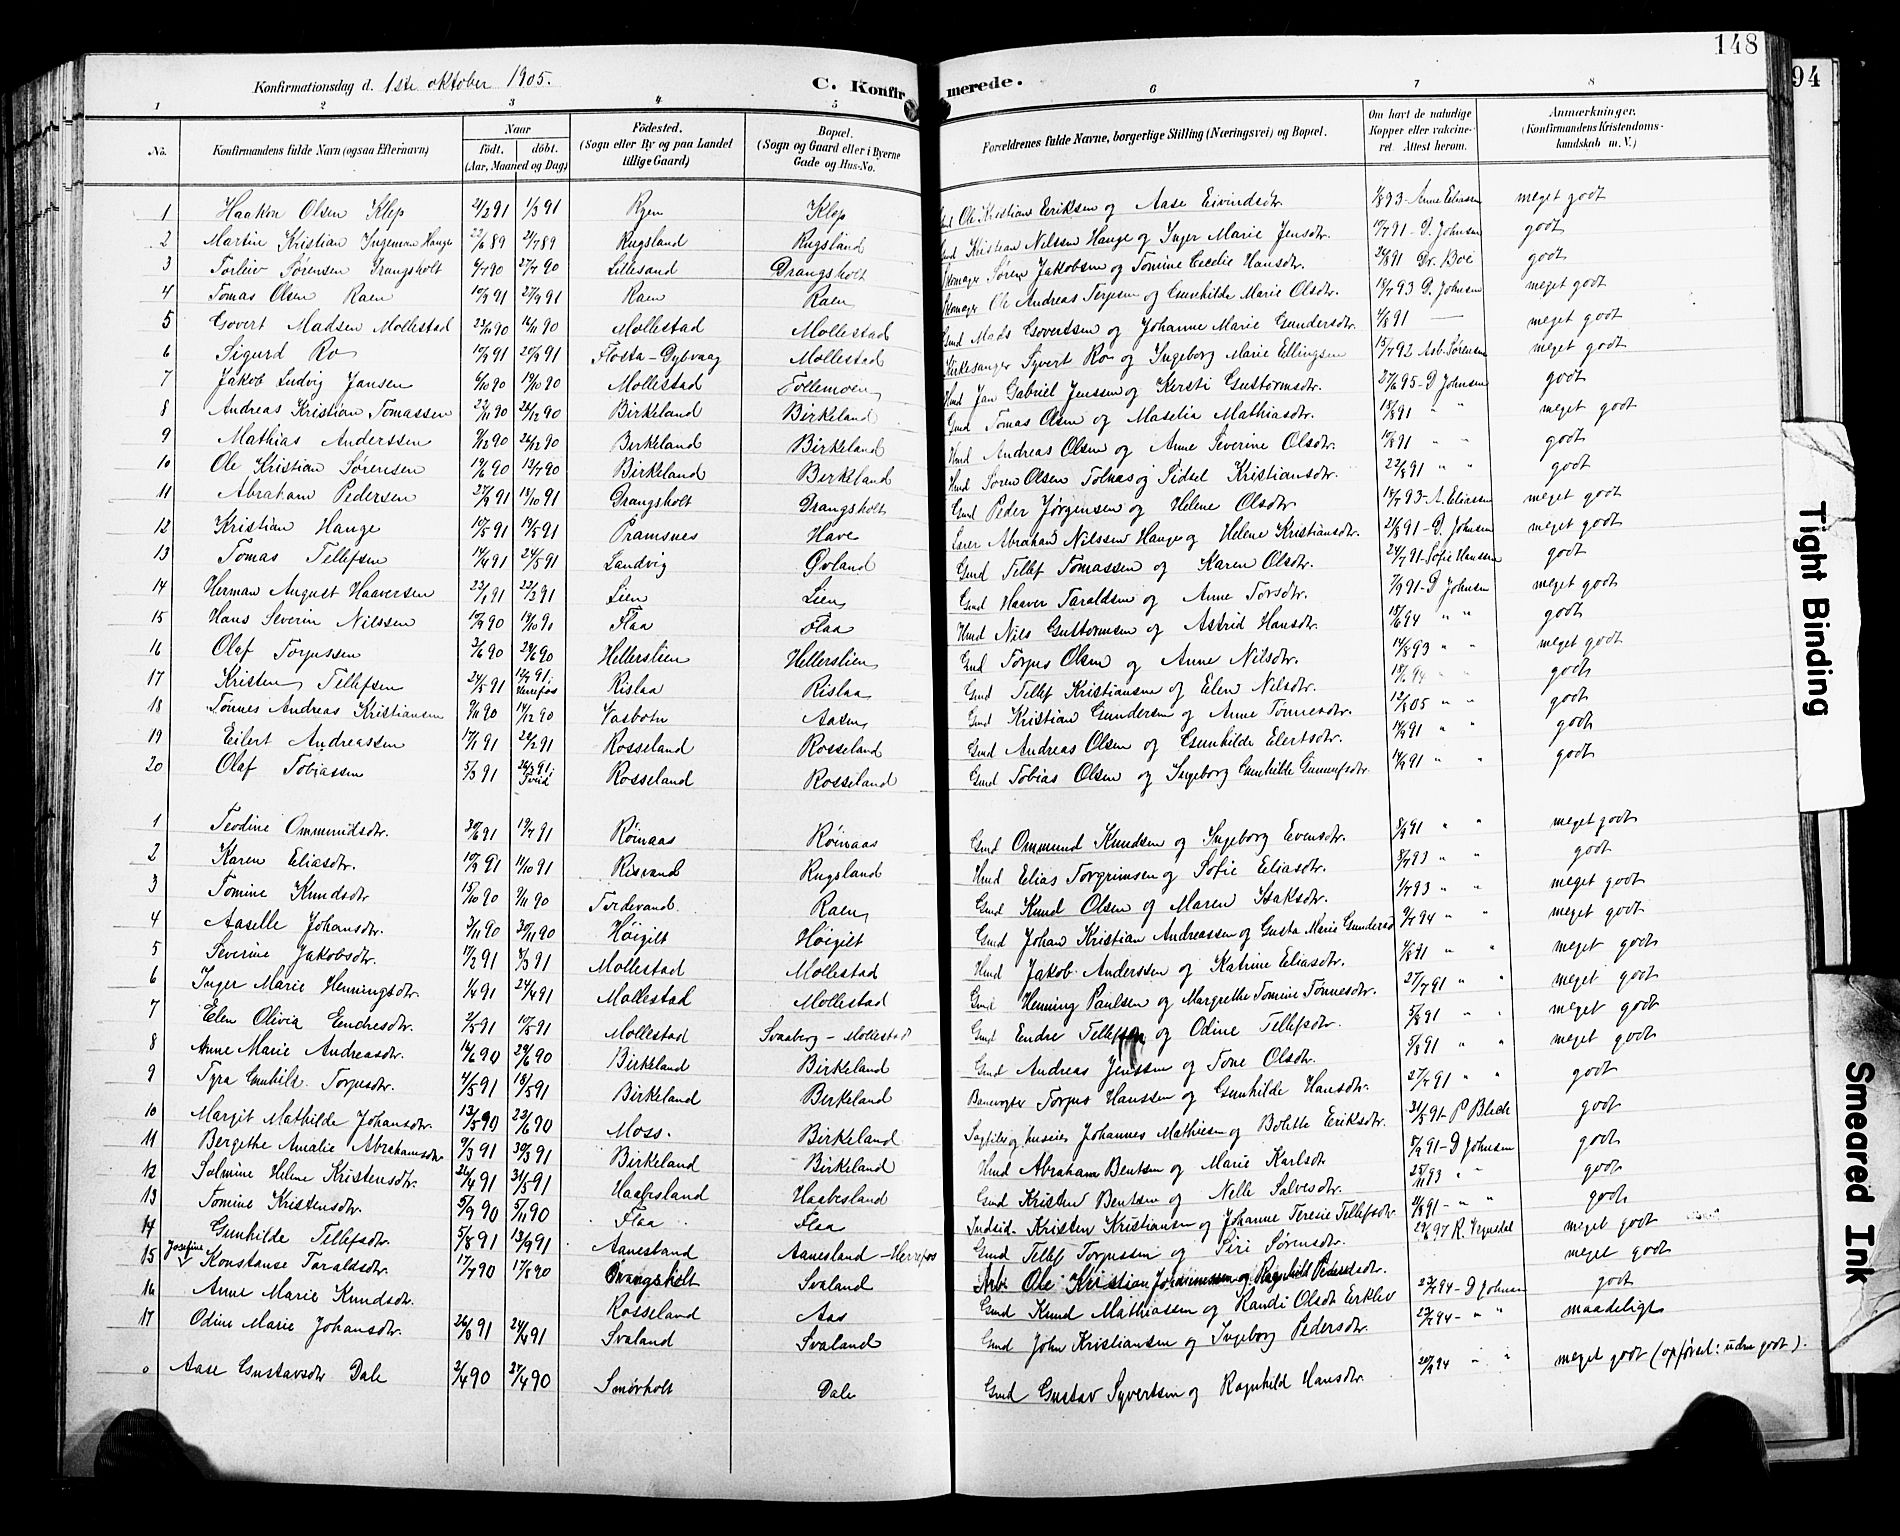 148
94
Konfirmationsdag d. 1ste oktober 1905. C. Konfirmerede.
1 2 3 4 5 6 7 8
No. Konfirmandens fulde Navn (ogsaa Efternavn) Naar födt. döbt. (Aar, Maaned og Dag) Födested. (Sogn eller By og paa Landet tillige Gaard) Bopæl. (Sogn og Gaard eller i Byerne Gade og Hus-No. Forældrenes fulde Navne, borgerlige Stilling (Næringsvei) og Bopæl. Om havt de naturlige Kopper eller vakcineret. Attest herom. Anmærkninger. (Konfirmandens Kristendomskundskab m. V.)
1 Haakon Olsen Klep 21/2 91 1/3 91 Ryen Klep Ole Kristian Eriksen og Aase Eivindsdtr. 1/8 93 - Anne Eliassen meget godt
2 Martin Kristian Ingeman Hauge 22/6 89 21/7 89 Rugsland Rugsland Gmd Kristian Nilssen Hauge og Inger Marie Jensdtr. 17/7 91 - D. Johnsen godt
3 Torleiv Sørensen Drangsholt 6/7 90 27/7 90 Lillesand Drangsholt Skomager Søren Jakobsen og Tomine Cecilie Hansdtr. 26/8 91 Dr. Boe godt
4 Tomas Olsen Raen 10/9 91 27/9 91 Raen Raen Skomager Ole Andreas Terjesen og Gunhilde Marie Olsdtr. 18/7 93 D. Johnsen meget godt
5 Govert Madsen Mollestad 23/11 90 16/11 90 Mollestad Mollestad Gmd Mads Govertsen og Johanne Marie Gundersdtr. 4/8 91 — meget godt
6 Sigurd Ro 10/2 91 20/3 91 Flosta - Dybvaag Mollestad Kirkesanger Syvert Ro og Ingeborg Marie Ellingsen 15/7 92 Asb. Sørensen meget godt
7 Jakob Ludvig Jansen 6/10 90 19/10 90 Mollestad Tollemoen Hmd Jan Gabriel Jenssen og Kersti Guttormsdtr. 27/6 95 - D Johnsen godt
8 Andreas Kristian Tomassen 22/11 90 26/12 90 Birkeland Birkeland Gmd Tomas Olsen og Maselia Mathiasdtr. 18/8 91 " " meget godt
9 Mathias Anderssen 9/12 90 26/12 90 Birkeland Birkeland Hmd Andreas Olsen og Anne Severine Olsdtr. 10/8 91 " " godt
10 Ole Kristian Sørensen 19/6 90 13/7 90 Birkeland Birkeland Hmd Søren Olsen Tolnas og Sidsel Kristiansdtr. 22/8 91 " " godt
11 Abraham Pedersen 27/9 91 18/10 91 Drangsholt Drangsholt Gmd Peder Jørgensen og Helene Olsdtr. 18/7 93 - A. Eliassen meget godt
12 Kristian Hauge 10/5 91 19/5 91 Pramsnes Have Abraham Nilssen Hauge og Helene Kristiansdtr. 21/8 91 - D. Johnsen meget godt
13 Tomas Tellefsen 14/4 91 24/5 91 Landvig Øvland Gmd Tellef Tomassen og Karen Olsdtr. 24/7 91 - Sofie Hanssen godt
14 Herman August Haaversen 23/1 91 22/3 91 Lien Lien Gmd Haaver Taraldsen og Anne Torsdtr. 7/9 91 - D Johnsen meget godt
15 Hans Severin Nilssen 10/9 90 19/10 90 Flaa Flaa Hmd Nils Guttormsen og Astrid Hansdtr. 18/6 94 " " godt
16 Olaf Torjussen 3/6 90 29/6 90 Hellerslien Hellerslien Gmd Torjus Olsen og Anne Nilsdtr. 14/8 93 " " meget godt
17 Kristen Tellefsen 24/5 91 12/7 91. Herefos Rislaa Rislaa Gmd Tellef Kristiansen og Elen Nilsdtr. 18/6 94 " " godt
18 Tønnes Andreas Kristiansen 9/11 90 14/12 90 Vasbotn Aasen Gmd Kristian Gundersen og Anne Tønnesdtr. 12/8 05 " " godt
19 Eilert Andreassen 17/1 91 22/2 91 Rosseland Rosseland Gmd Andreas Olsen og Gunhilde Elertsdtr. 14/9 91 " " godt
20 Olaf Tobiassen 5/3 91 26/3 91. Tveid Rosseland Rosseland Gmd Tobias Olsen og Ingeborg Gunhilde Gunnufsdtr. 14/9 91 " " godt
1 Teodine Ommundsdtr. 30/6 91 19/7 91 Røinaas Røinaas Gmd Ommund Knudsen og Ingeborg Evensdtr. 8/9 91 " " meget godt
2 Karen Eliasdtr. 10/9 91 11/10 91 Risvand Rugsland Hmd Elias Torgrimsen og Sofie Eliasdtr. 8/7 93 " " godt
3 Tomine Knudsdtr 15/10 90 9/11 90 Tordevand Raen Gmd Knud Olsen og Maren Isaksdtr. 1/7 93 " " meget godt
4 Aaselle Johansdtr. 3/11 90 30/11 90 Høigilt Høigilt Gmd Johan Kristian Andreassen og Gusta Marie Gundersd 9/7 94 " " meget godt
5 Severine Jakobsdtr. 17/2 91 8/3 91 Mollestad Mollestad Hmd Jakob Anderssen og Katrine Eliasdtr. 1/8 91 " " meget godt
6 Inger Marie Henningsdtr. 1/4 91 24/4 91 Mollestad Mollestad Gmd Henning Paulsen og Margrethe Tomine Tønnesdtr. 27/7 91 " " meget godt
7 Elen Olivia Endresdtr. 2/5 91 10/5 91 Mollestad Svaaberg - Mollestad Gmd Endre Tellefsen og Odine Tellefsdtr. 5/8 91 " " meget godt
8 Anne Marie Andreasdtr. 14/6 90 29/6 90 Birkeland Birkeland Gmd Andreas Jenssen og Tone Olsdtr. 5/8 91 " " meget godt
9 Tyra Gunhild Torjusdtr. 4/5 91 18/5 91 Birkeland Birkeland Banevogter Torjus Hanssen og Gunhilde Hansdtr. 27/7 91 " " godt
10 Margit Mathilde Johansdtr. 13/5 90 22/6 90 Moss. Birkeland Johannes Mathiesen og Bolette Eriksdtr. 31/5 91 - P Blich godt
11 Bergethe Amalie Abrahamsdtr 9/3 91 30/3 91 Birkeland Birkeland Hmd Abraham Bentsen og Marie Karlsdt 5/9 91 - D Johnsen godt
12 Salmine Helene Kristensdtr. 26/4 91 31/5 91 Haabesland Haabesland Gmd Kristen Bentsen og Nelle Salvesdtr. 25/11 93 " godt
13 Tomine Kristensdtr. 5/9 90 5/11 90 Flaa Flaa Indsid. Kristen Kristiansen og Johanne Teresie Tellefsdtr. 4/8 91 - " " godt
14 Gunhilde Tellefsdtr. 5/8 91 13/9 91 Aanesland Aanesland - Herrefos Gmd Tellef Torjussen og Siri Sørensdtr. 22/6 97 R. Vegusdal meget godt
15 Josefine Konstanse Taraldsdtr. 17/7 90 17/8 90 Drangsholt Svaland Arb. Ole Kristian Johannessen og Ragnhild Pedersdtr. meget godt
16 Anne Marie Knudsdtr. Rosseland Aas Gmd Knud Mathiassen og Randi Olsdt Erklev 23/7 94 - D Johnsen godt
17 Odine Marie Johansdtr. 26/3 91 24/4 91 Svaland Svaland Gmd John Kristiansen og Ingeborg Pedersdtr. 27/7 94 - " " maadeligt
0 Aase Gustavsdtr Dale 2/4 90 27/4 90 Smørholt Dale Gmd Gustav Syvertsen og Ragnhild Hansdtr. 20/9 94 " " meget godt (opførsel: udm godt).
Tight Binding
Smeared Ink